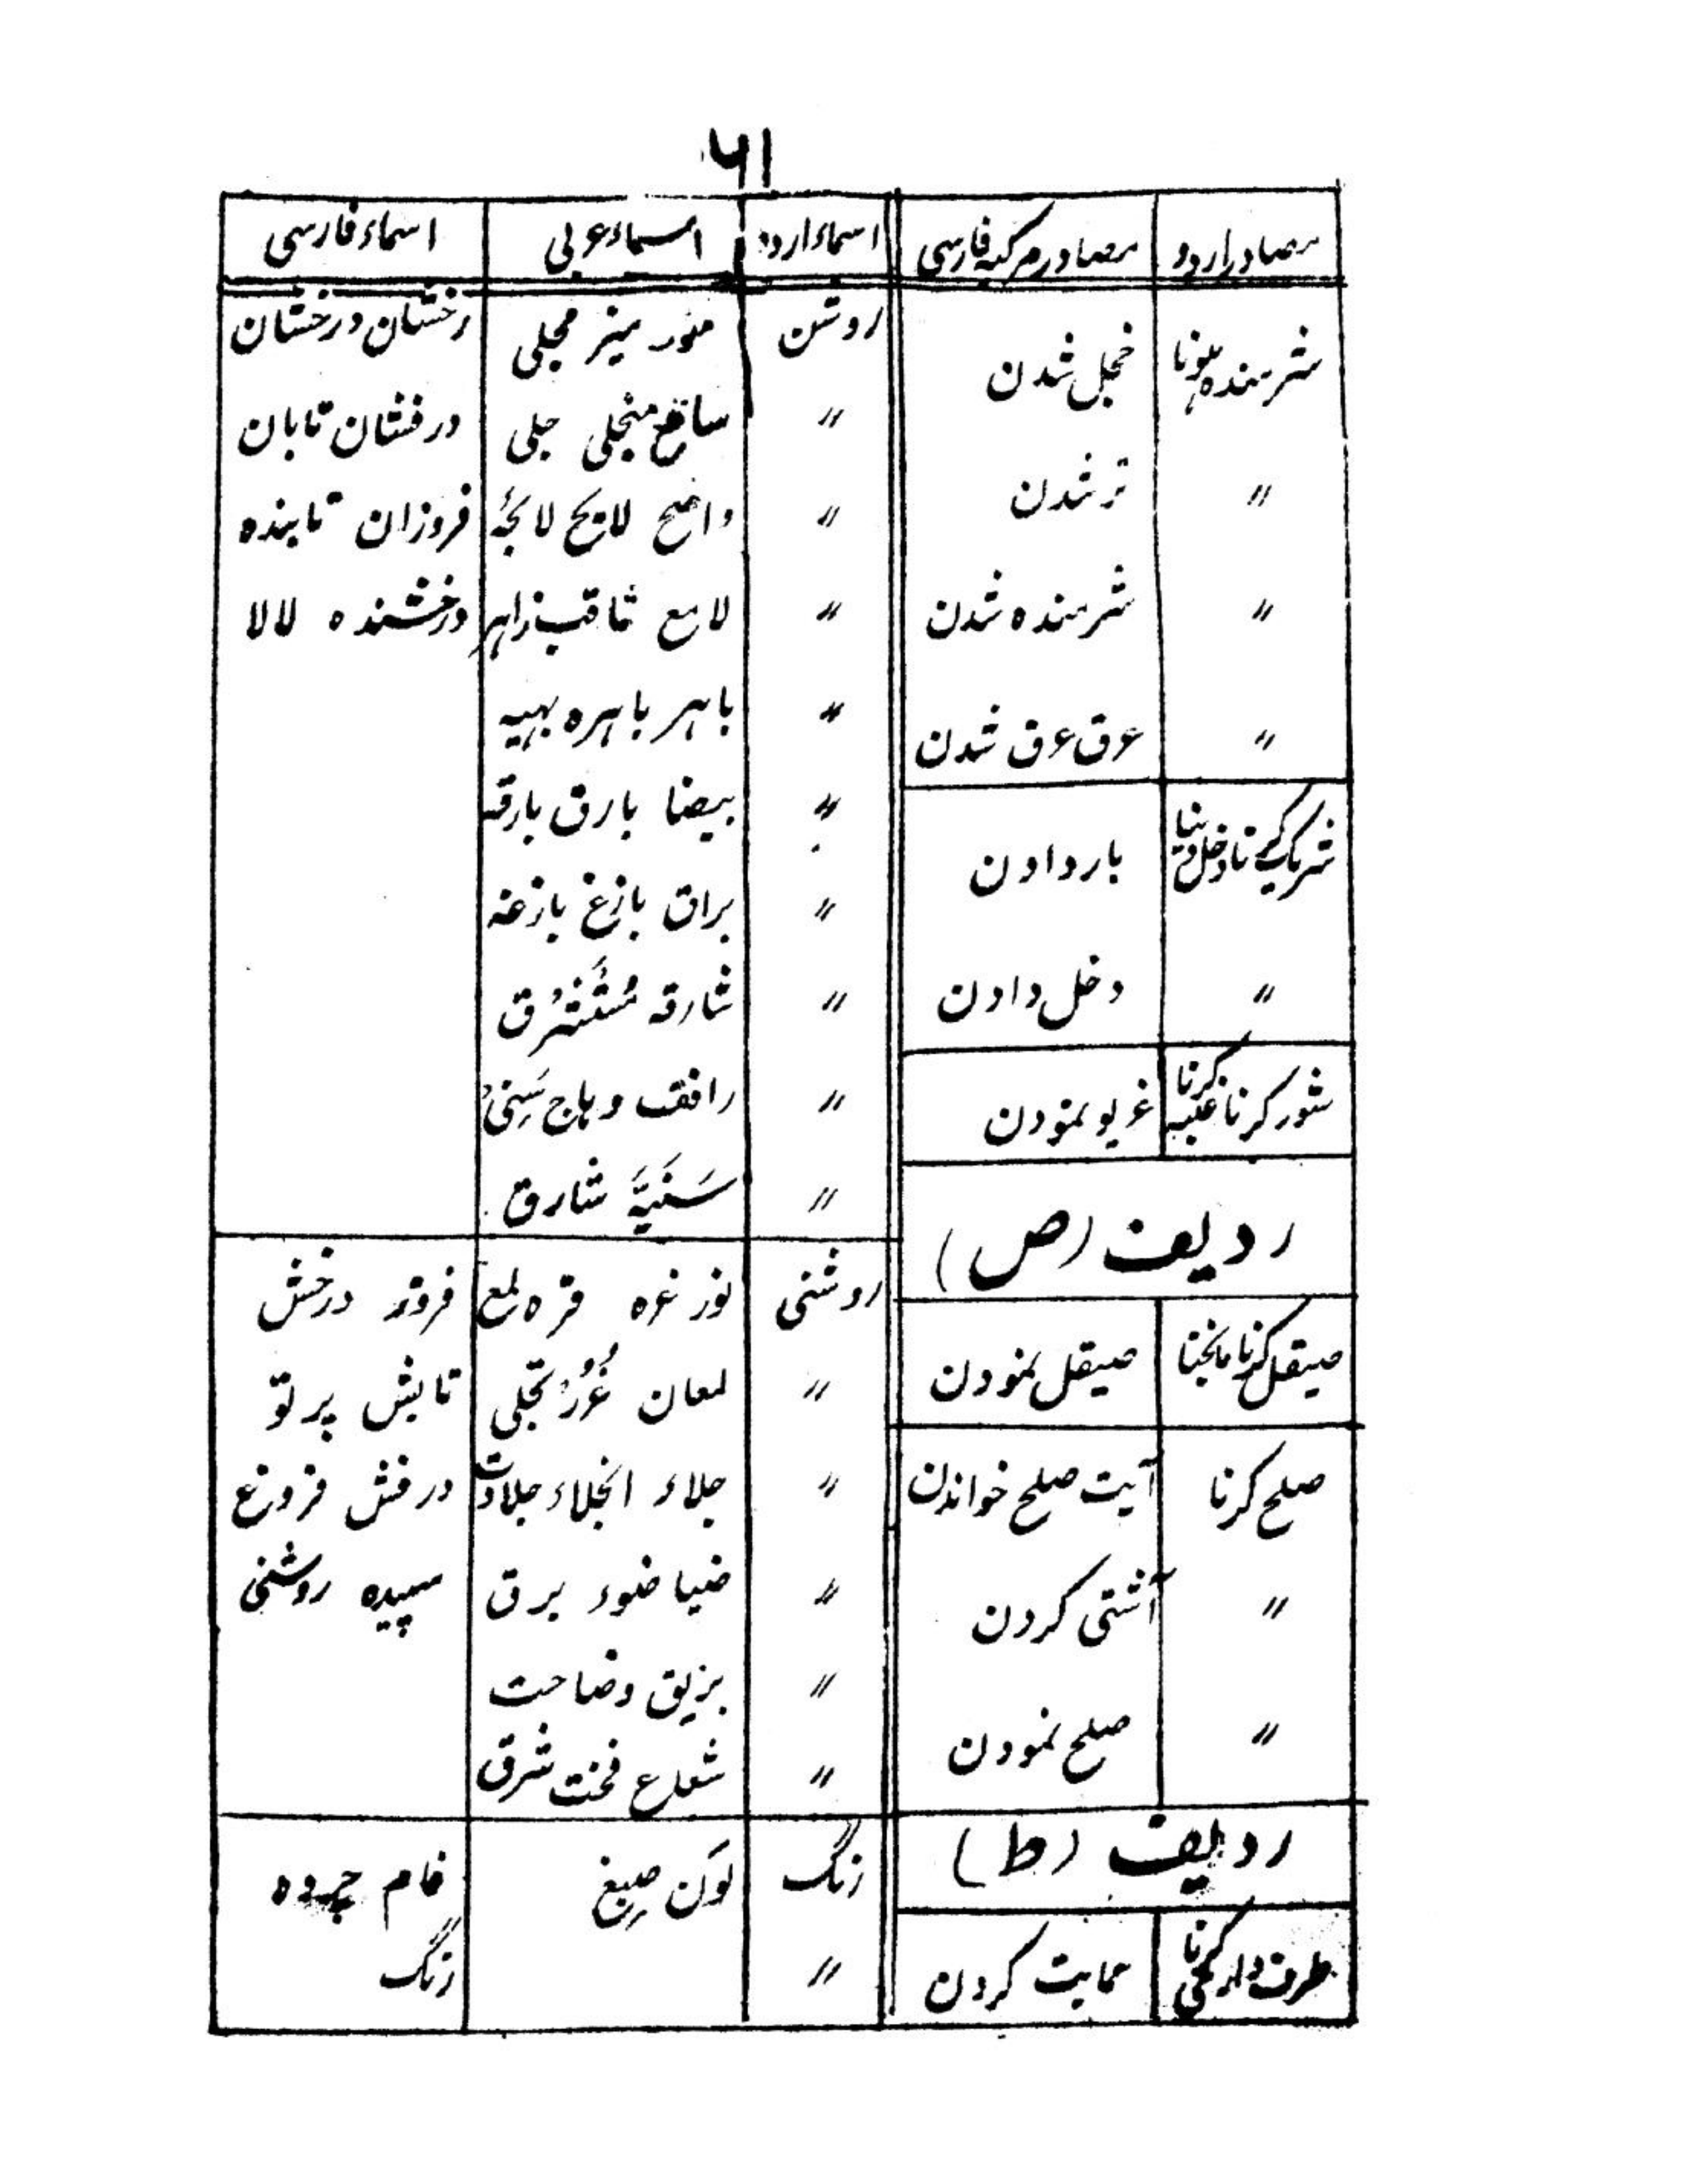 ۶۱
مصادر اردو | مصادر مرکبہ فارسی | اسماء اردو | اسماء عربی | اسماء فارسی
شرمندہ ہونا | خجل شدن
〃 | تر شدن
〃 | شرمندہ شدن
〃 | عرق عرق شدن
شریک کرنا دخل دینا | بار دادن
〃 | دخل دادن
شور کرنا غلبہ کرنا | غریو نمودن
ردیف (ص)
صیقل کرنا مانجنا | صیقل نمودن
صلح کرنا | آیت صلح خواندن
〃 | آشتی کردن
〃 | صلح نمودن
ردیف (ط)
طرف داری کرنا | حمایت کردن
روشن | منور منیر مجلی | رخشان درخشان
〃 | ساطع منجلی جلی | درفشان تابان
〃 | واضح لائح لائحہ | فروزان تابندہ
〃 | لامع ثاقب زاہر | درخشندہ لالا
〃 | باہر باہرہ بہیہ
〃 | بیضا بارق بارقہ
〃 | براق بازغ بازغہ
〃 | شارقہ
〃 | وہاج سَنِیُّ
〃 | سَنِیَّہ شارق
روشنی | نور غرہ قرہ لمع | درخش
〃 | لمعان غُرُرُ تجلی | تابش پرتو
〃 | جلاء انجلاء جلادت | درفش فروزغ
〃 | ضیا ضوء برق | سپیدہ روشنی
〃 | بزیق وضاحت
〃 | شعاع فخت شرق
رنگ | لَون صِبغ | فام چردہ
〃 | رنگ